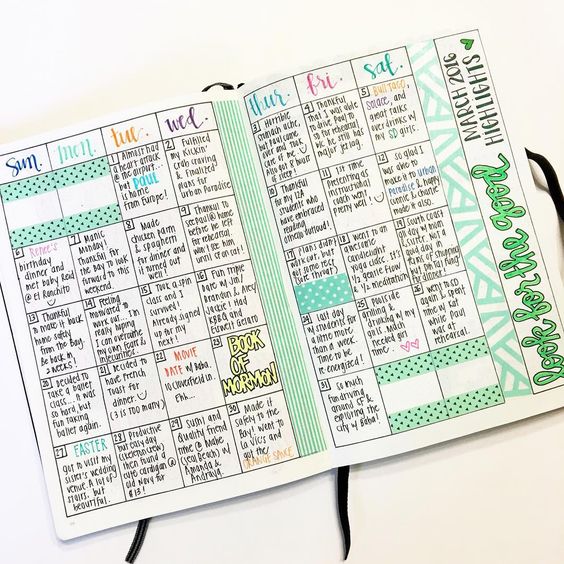 sun.
mon.
tue.
wed.
thur.
fri.
sat.
MARCH 2016
HIGHLIGHTS
look for the good
1 Almost had
a heart attack
@ the airport...
but PAUL
is home
from Europe!
2 Fulfilled
my Kickin'
Crab craving
& finalized
plans for
Urban Paradise
3 Horrible
stomach ache,
but Paul came
over and took
care of me so
Also got 8 hours
of sleep!
4 Thankful
that I was able
to drive Paul to
for rehearsal
w/c he still has
major jet lag.
5 Bull Taco,
Solace, and
great talks
over drinks w/
my SD girls.
6 Renee's
birthday
dinner and
met baby Reid
@ El Ranchito
7 Manic
Monday!
Thankful for
the Bay to look
forward to this
weekend.
8 Made
chicken parm
& spaghetti
for dinner
and it turned
out well!
9 Thankful to
see Paul @ home
before he left
for rehearsal.
Won't see him
until
10 Thankful
for my IZA
students who
have embraced
reading
Othello outloud!
11 My 1st time
presenting as
instructional
coach went
pretty well!
12 So glad I
was able to
make it to Urban
Paradise & happy
Connie & Charlie
made it also.
13 Thankful
to make it back
home safely
from the Bay.
Be back in
2 weeks!
14 Feeling
motivated to
work out... I'm
really hoping
I can overcome
my own fear &
insecurities.
15 Took a spin
class and I
survived!
Already signed
up for my
next!
16 Fun triple
date w/ Jim &
Brandon & Arej
& Jackie!
Habit & KBB
and Esiwell Gelato
17 Plans didn't
work out, but
got some
18 Went to an
awesome
candlelight
yoga class. It's
1/2 gentle flow
& 1/2 meditation
19 South coast
day w/ mom &
sister. Spent
day in
traffic
but Din Tai Fung!
20 Decided to
take a ballet
class... It was
so hard, but
fun taking
ballet again.
21 Decided to
have French
Toast for
dinner.
(3 is too many)
22 MOVIE
DATE w/ Baba.
10 Cloverfield Ln.
Ehh...
23 BOOK
OF
MORMON
24 Last day
w/ students for
a lil more than
a week. Time
to be
re-energized!
25 Poolside
grilling &
drinking w/ my
gals. Much
needed girl
time.
26 Went to SD
again & spent
time w/ Kat
while Paul
was at
rehearsal.
27 EASTER
Got to visit my
sister's wedding
venue. A lot of
stairs, but
beautiful.
28 Productive
but easy day.
then found a
cute cardigan @
Old Navy for
$13!
29 Sushi and
Quality Friend
time @ Mahe
(Seal Beach) w/
Amanda &
Andraya.
30 Made it
safely to the
Bay! Went to
La Vic's and
got the
ORANGE SAUCE.
31 So much
fun driving
around SF &
exploring the
city w/ Baba!